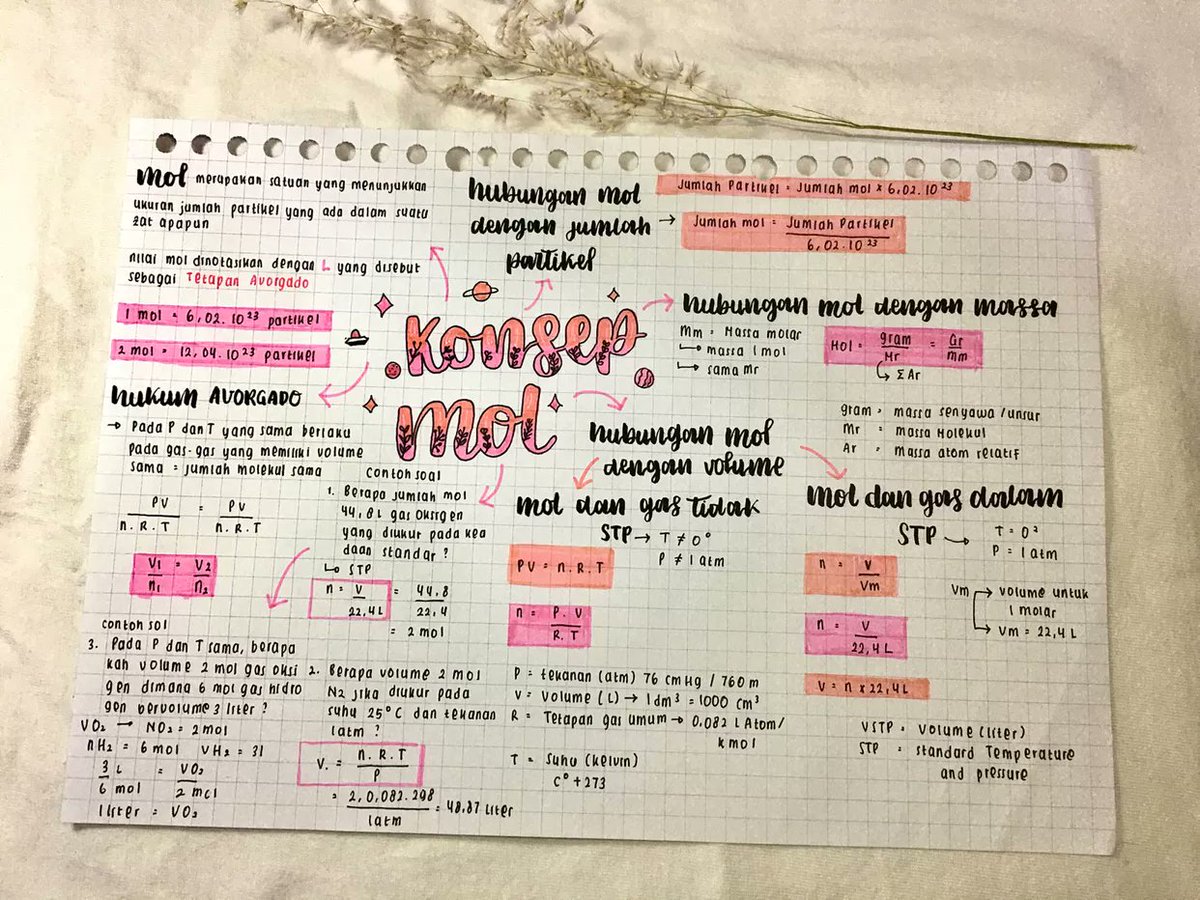 mol merupakan satuan yang menunjukkan
ukuran jumlah partikel yang ada dalam suatu
zat apapun
nilai mol dinotasikan dengan L yang disebut
sebagai Tetapan Avorgado
1 mol = 6,02.10²³ partikel
2 mol = 12,04.10²³ partikel
hubungan mol
dengan jumlah
partikel
Jumlah Partikel = Jumlah mol × 6,02.10²³
→ Jumlah mol = Jumlah Partikel
6,02.10²³
Konsep
mol
hubungan mol dengan massa
Mm = Massa molar
massa 1 mol
sama Mr
Mol = gram = Gr
Mr mm
Σ Ar
gram = massa senyawa /unsur
Mr = massa Molekul
Ar = massa atom relatif
hukum AVORGADO
→ Pada P dan T yang sama berlaku
pada gas-gas yang memiliki volume
sama = jumlah molekul sama
PV = PV
n.R.T n.R.T
V1 = V2
n1 n2
contoh soal
1. Berapa jumlah mol
44,8L gas oksigen
yang diukur pada kea
daan standar ?
STP
n = V = 44,8
22,4L 22,4
= 2 mol
contoh sol
3. Pada P dan T sama, berapa
kah volume 2 mol gas oksi
gen dimana 6 mol gas hidro
gen bervolume 3 liter ?
VO2 → NO2 = 2mol
nH2 = 6mol VH2 = 3l
3 L = VO2
6 mol 2 mol
1 liter = VO2
2. Berapa volume 2 mol
N2 jika diukur pada
suhu 25°C dan tekanan
1atm ?
V. = n.R.T
P
= 2,0,082.298 = 48,87 Liter
1atm
hubungan mol
dengan volume
mol dan gas tidak
STP → T ≠ 0°
P ≠ 1 atm
PV = n.R.T
n = P.V
R.T
P = tekanan (atm) 76 cmHg / 760 m
V = Volume (L) → 1 dm³ = 1000 cm³
R = Tetapan gas umum → 0,082 L Atom/
k mol
T = Suhu (kelvin)
C° + 273
mol dan gas dalam
STP → T = 0³
P = 1 atm
n = V
Vm
Vm → volume untuk
1 molar
→ Vm = 22,4 L
n = V
22,4 L
V = n × 22,4L
VSTP = Volume (liter)
STP = standard Temperature
and pressure